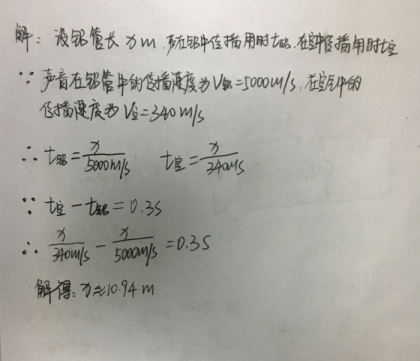 解：设铝管长 x m，声在铝中传播用时t铝，在空中传播用时t空
∵ 声音在铝管中的传播速度为 V铝=5000m/s，在空气中的
传播速度为 V空=340m/s
∴ t铝=x/5000m/s t空=x/340m/s
∵ t空-t铝=0.3s
∴ x/340m/s - x/5000m/s =0.3s
解得：x≈10.94 m